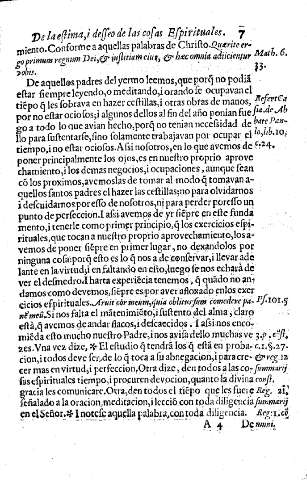 De la estima, i desseo de las cosas Espirituales. 7
miento. Conforme a aquellas palabras de Christo. Quærite er-
go primum regnum Dei, & iustitiam eius, & hæc omnia adiicientur
vobis.
Math. 6.
33.
De aquellas padres del yermo leemos, que porq̃ no podiá
estar siempre leyendo, o meditando, i orando se ocupavan el
tiẽpo q̃ les sobrava en hazer cestillas, i otras obras de manos,
por no estar ociosos; i algunos dellos al fin del año ponian fue-
go a todo lo que avian hecho, porq̃ no tenian necessidad de
ello para sustentarse, sino solamente trabajavan por ocupar el
tiempo, i no estar ociosos. Assi nosotros, en lo que avemos de
poner principalmente los ojos, es en nuestro proprio aprove
chamiento, i los demas negocios, i ocupaciones, aunque sean
cõ los proximos, avemoslas de tomar al modo q̃ tomavan a-
quellos santos padres el hazer las cestillas; no para olvidarnos
i descuidarnos por esso de nosotros, ni para perder por esso un
punto de perfeccion. I assi avemos de yr siẽpre en este funda
mento, i tenerle como primer principio, q̃ los exercicios espi-
rituales, que tocan a nuestro proprio aprovechamiento, los a-
vemos de poner siẽpre en primer lugar, no dexandolos por
ninguna cosa: porq̃ esto es lo q̃ nos a de conservar, i llevar ade
lante en la virtud; i en faltando en esto, luego se nos echará de
ver el desmedro. I harta experiẽcia tenemos, q̃ quãdo no an-
damos como devemos, siẽpre es por aver afloxado en los exer
cicios espirituales. Aruit cor meum, quia oblitus sum comedere pa-
nẽ meũ. Si nos falta el mãtenimiẽto, i sustento del alma, claro
está, q̃ avemos de andar flacos, i descaecidos. I assi nos enco-
miẽda esto mucho nuestro Padre, i nos avisa dello muchas ve
zes. Vna vez dize, * El estudio q̃ tendrá los q̃ está en proba-
cion, i todos deve ser, de lo q̃ toca a su abnegacion, i para cre-
cer mas en virtud, i perfeccion. Otra dize, den todos a las co-
sas espirituales tiempo, i procuren devocion, quanto la divina
gracia les comunicare. Otra, den todos el tiẽpo que les fuere
señalado a la oracion, meditacion, i lecciõ con toda diligencia
en el Señor. * I notese aquella palabra, con toda diligencia.
Ps. 101.5
A 4 De